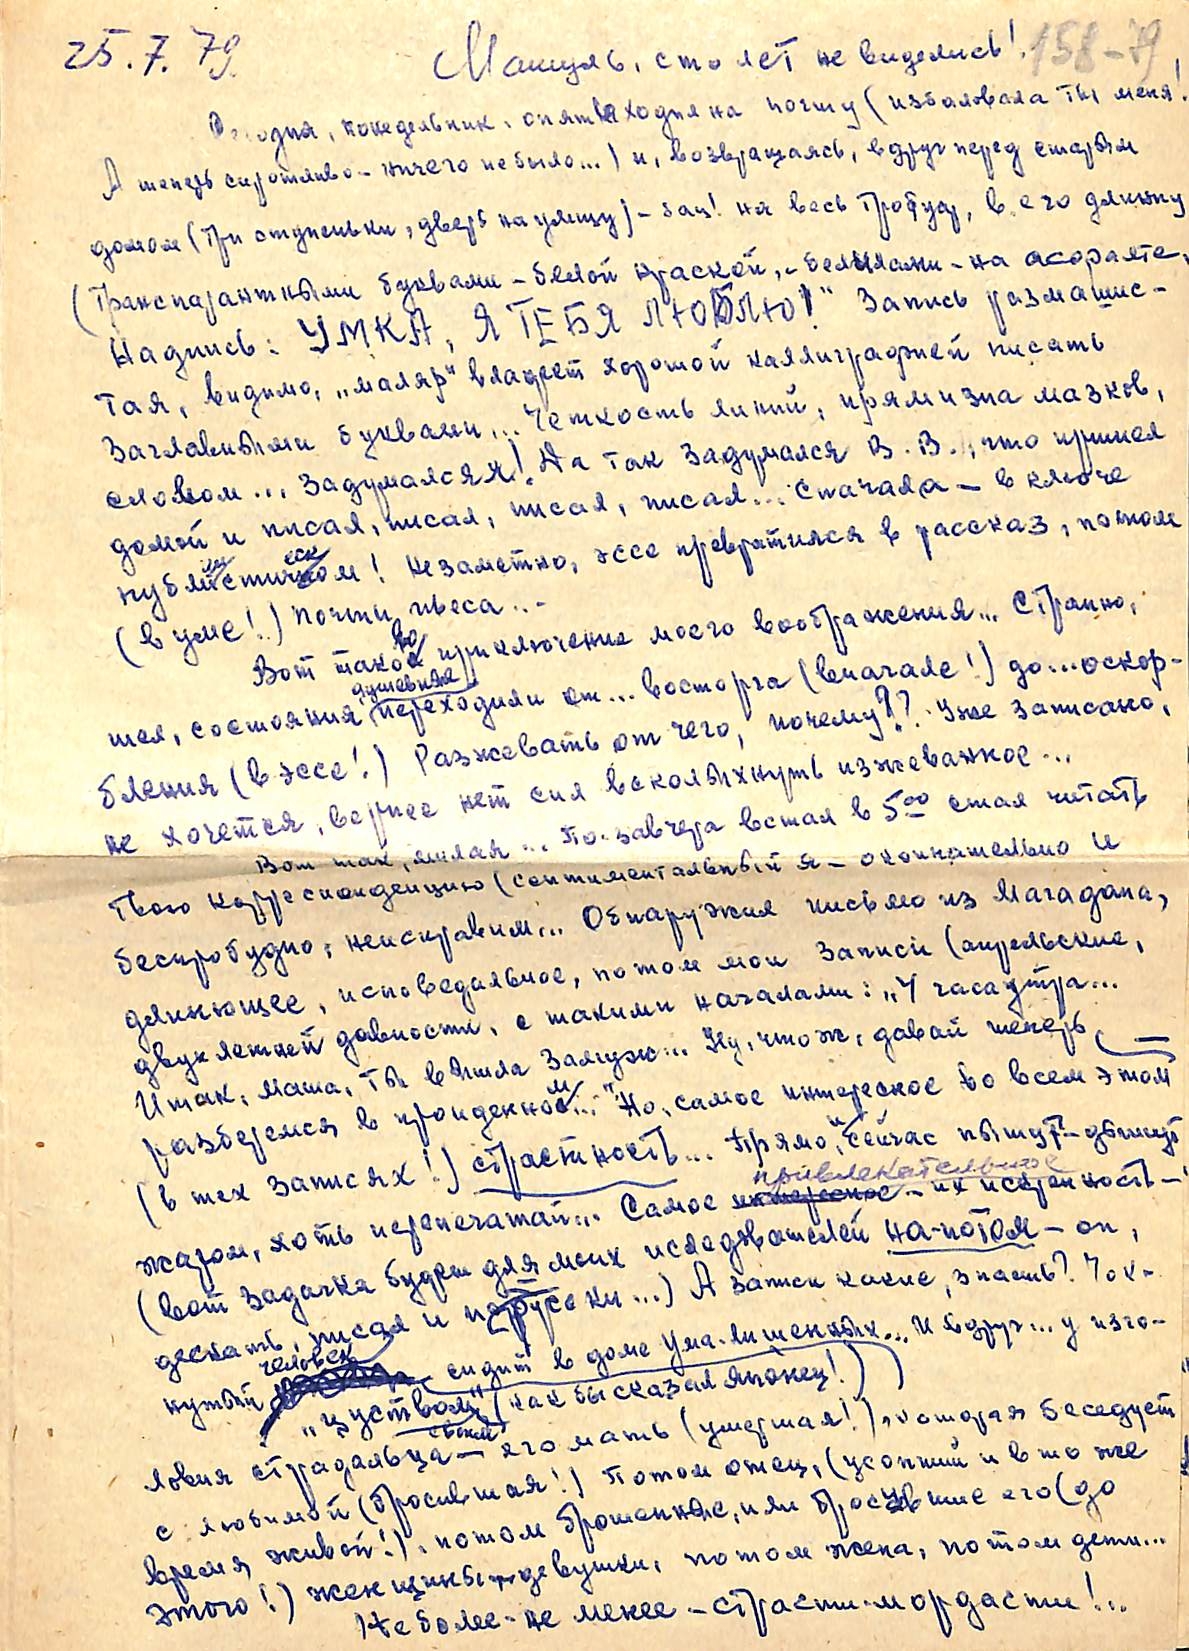 25.7.79.
158-79
Машуль, сто лет не виделись!
Сегодня, понедельник, опять ходил на почту (избаловала ты меня!
А теперь сиротливо - ничего не было...) и, возвращаясь, вдруг перед старым
домом (три ступеньки, дверь на улицу) - бац! на весь тротуар, в его длину
(транспарантными буквами - белой краской, - белилами - на асфальте,
надпись: УМКА, Я ТЕБЯ ЛЮБЛЮ!" Запись размашис-
тая, видимо, "маляр" владеет хорошой каллиграфией писать
заглавными буквами... Четкость линий, прямизна мазков,
словом... Задумался я! Да так задумался В.В., что пришел
домой и писал, писал, писал, писал... Сначала - в ключе
публицистическом! Незаметно, эссе превратился в рассказ, потом
(в уме!..) почти пьеса...
Вот таково приключение моего воображения... Странно,
шел, состояния душевные переходили от... восторга (вначале!) до... оскор-
бления (в эссе!) Разжевать от чего, почему?? Уже записано,
не хочется, вернее нет сил всколыхнуть изжеванное...
Вот так, милая... По-завчера встал в 5⁰⁰ стал читать
твою корреспонденцию (сентиментальный я - окончательно и
беспробудно, неисправим... Обнаружил письмо из Магадана,
длиннющее, исповедальное, потом мои записи (апрельские,
двухлетней давности, с такими началами: "4 часа утра...
Итак, Маша, ты вышла замуж... Ну, что ж, давай теперь
разберемся в пройденном..." Но, самое интересное во всем этом
(в тех записях!) страстность... Прямо, и сейчас пышут - дышут
жаром, хоть перепечатай... Самое привлекательное - их искренность -
(вот задачка будет для моих исследователей на-потом - он,
дескать, писал и  ...) А записи какие, знаешь? Чок-
нутый человек сидит в доме ума-лишенных... И вдруг... у изго-
"цуством" (как бы сказал японец!)
ловия страдальца - его мать (умершая!), которая беседует
с любимой (бросившая!) Потом отец, (усопший и в то же
время живой!), потом брошенные, или бросившие его (до
этого!) женщины-девушки, потом жена, потом дети...
Не более - не менее - страсти-мордасти!..